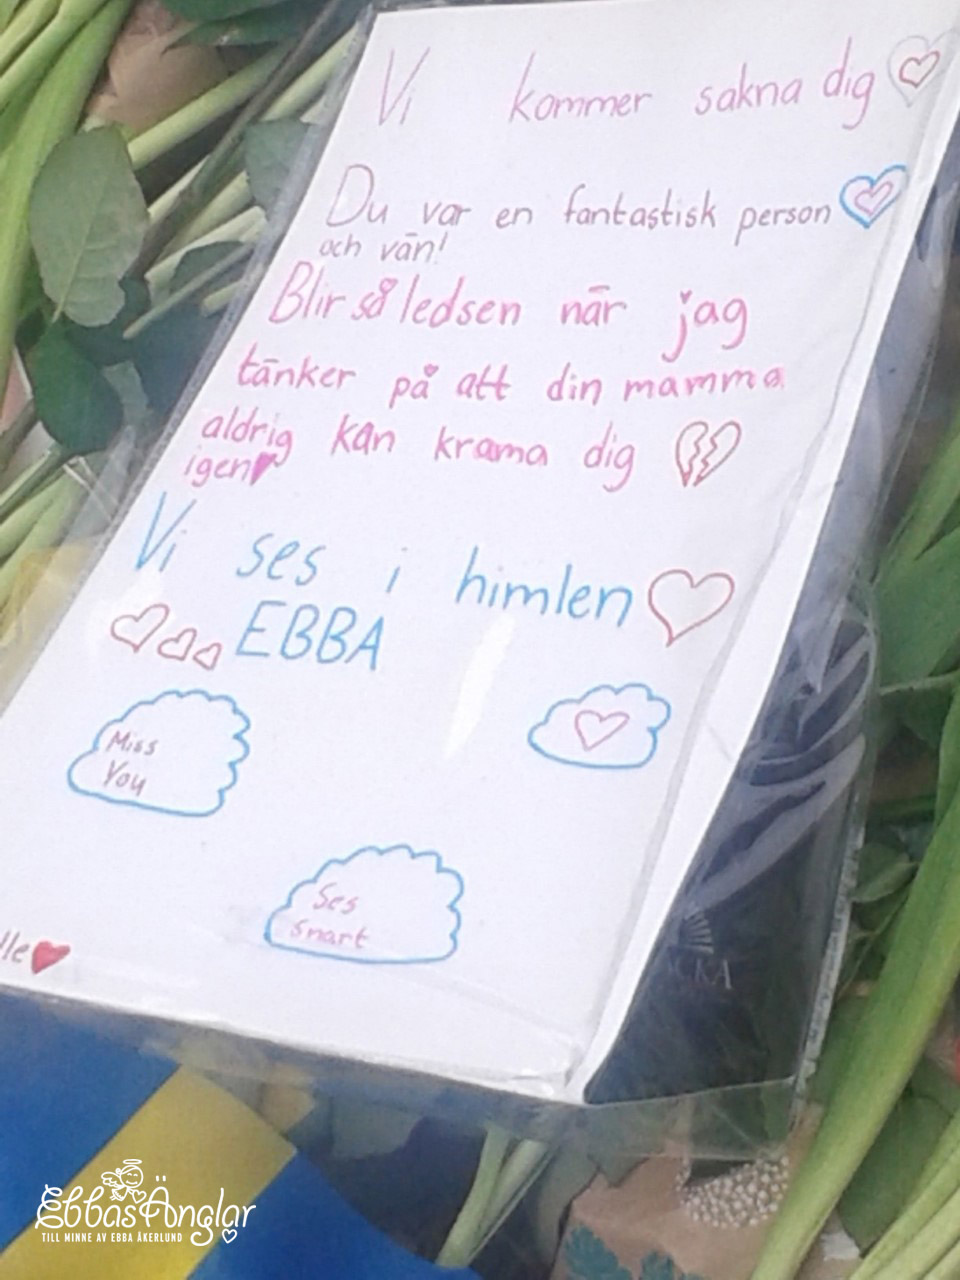 Vi kommer sakna dig
Du var en fantastisk person
och vän!
Blir så ledsen när jag
tänker på att din mamma
aldrig kan krama dig
igen
Vi ses i himlen
EBBA
Miss
You
Ses
Snart
EbbasÄnglar
TILL MINNE AV EBBA ÅKERLUND